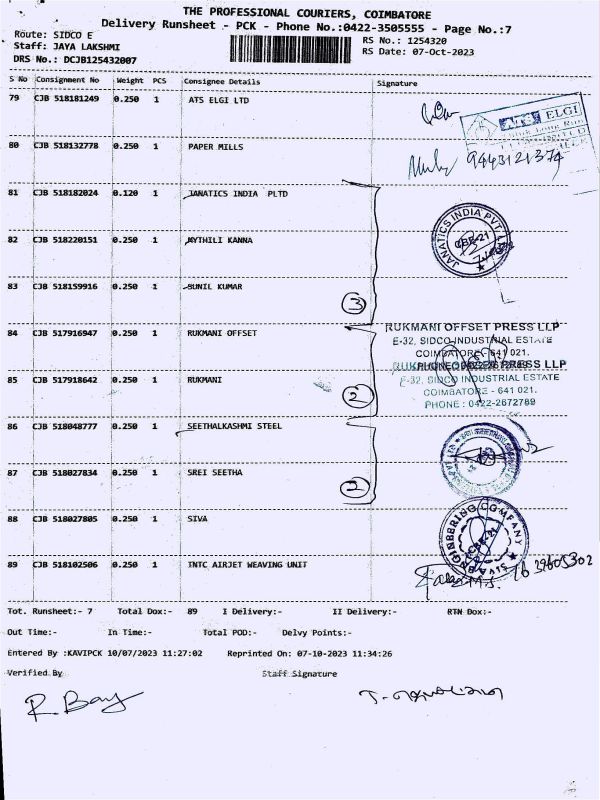 THE PROFESSIONAL COURIERS, COIMBATORE
Delivery Runsheet - PCK - Phone No.:0422-3505555 - Page No.:7
Route: SIDCO E
RS No.: 1254320
Staff: JAYA LAKSHMI
RS Date: 07-Oct-2023
DRS No.: DCJB125432007
S No Consignment No Weight PCS Consignee Details Signature
79 CJB 518181249 0.250 1 ATS ELGI LTD
ELGI
80 CJB 518132778 0.250 1 PAPER MILLS
9443121374
81 CJB 518182024 0.120 1 JANATICS INDIA PLTD
JANATICS INDIA PVT. LTD
CBE-21
82 CJB 518220151 0.250 1 MYTHILI KANNA
83 CJB 518159916 0.250 1 SUNIL KUMAR
3
84 CJB 517916947 0.250 1 RUKMANI OFFSET
RUKMANI OFFSET PRESS LLP
E-32, SIDCO INDUSTRIAL ESTATE
COIMBATORE - 641 021.
85 CJB 517918642 0.250 1 RUKMANI
2
E-32, SIDCO INDUSTRIAL ESTATE
COIMBATORE - 641 021.
PHONE : 0422-2672789
86 CJB 518048777 0.250 1 SEETHALKASHMI STEEL
87 CJB 518027834 0.250 1 SREI SEETHA
2
88 CJB 518027805 0.250 1 SIVA
SIVA ENGINEERING COMPANY
CBE-21
89 CJB 518102506 0.250 1 TNTC AIRJET WEAVING UNIT
Tot. Runsheet:- 7 Total Dox:- 89 I Delivery:- II Delivery:- RTN Dox:-
Out Time:- In Time:- Total POD:- Delvy Points:-
Entered By :KAVIPCK 10/07/2023 11:27:02 Reprinted On: 07-10-2023 11:34:26
Verified By Staff Signature